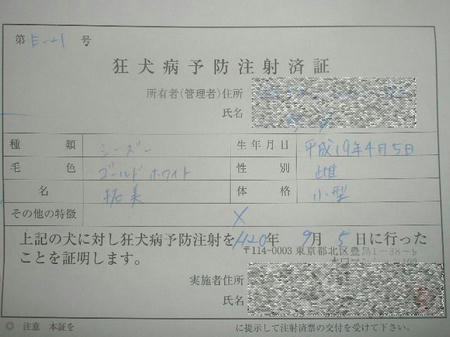 第 E-21 号
狂犬病予防注射済証
所有者(管理者)住所
氏名
種類 シーズー 生年月日 平成19年4月5日
毛色 ゴールドホワイト 性別 雌
名 拓美 体格 小型
その他の特徴 ×
上記の犬に対し狂犬病予防注射をH20年 9月 5日に行った
ことを証明します。
〒114-0003 東京都北区豊島1-38-
実施者住所
氏名
◎ 注意 本証を に提示して注射済票の交付を受けて下さい。